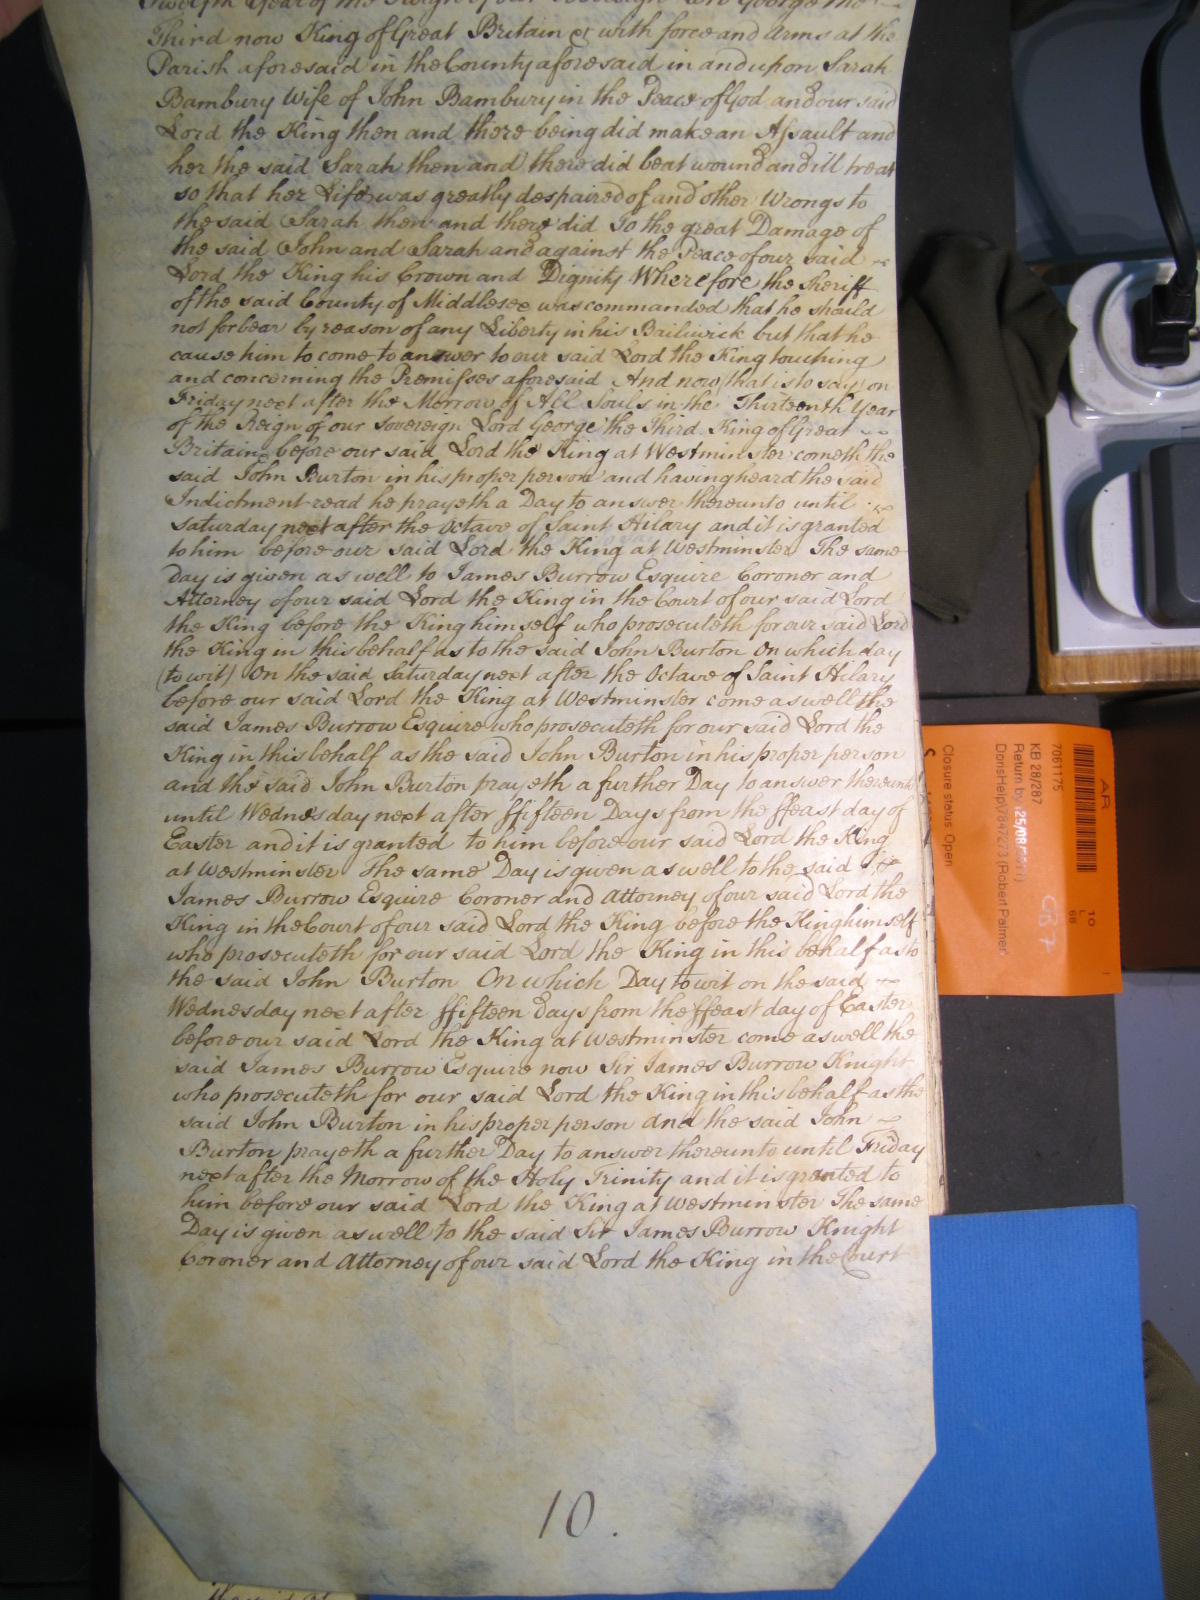 Twelfth Year of the Reign of our Sovereign Lord George the
Third now King of Great Britain &c with force and Arms at the
Parish aforesaid in the County aforesaid in and upon Sarah
Bambury Wife of John Bambury in the Peace of God and our said
Lord the King then and there being did make an Assault and
her the said Sarah then and there did beat wound and ill treat
so that her Life was greatly despaired of and other Wrongs to
the said Sarah then and there did To the great Damage of
the said John and Sarah and against the Peace of our said
Lord the King his Crown and Dignity Wherefore the Sheriff
of the said County of Middlesex was commanded that he should
not forbear by reason of any Liberty in his Bailiwick but that he
cause him to come to answer to our said Lord the King touching
and concerning the Premisses aforesaid And now (that is to say) on
Friday next after the Morrow of All Souls in the Thirteenth Year
of the Reign of our Sovereign Lord George the Third King of Great
Britain &c before our said Lord the King at Westminster cometh the
said John Burton in his proper person and having heard the said
Indictment read he prayeth a Day to answer thereunto until
Saturday next after the Octave of Saint Hilary and it is granted
to him before our said Lord the King at Westminster The same
Day is given as well to James Burrow Esquire Coroner and
Attorney of our said Lord the King in the Court of our said Lord
the King before the King himself who prosecuteth for our said Lord
the King in this behalf as to the said John Burton On which day
(to wit) On the said Saturday next after the Octave of Saint Hilary
before our said Lord the King at Westminster come as well the
said James Burrow Esquire who prosecuteth for our said Lord the
King in this behalf as the said John Burton in his proper person
and the said John Burton prayeth a further Day to answer thereunto
until Wednesday next after ffifteen Days from the ffeast day of
Easter and it is granted to him before our said Lord the King
at Westminster The same Day is given as well to the said
James Burrow Esquire Coroner and Attorney of our said Lord the
King in the Court of our said Lord the King before the King himself
who prosecuteth for our said Lord the King in this behalf as to
the said John Burton On which Day to wit on the said
Wednesday next after ffifteen Days from the ffeast day of Easter
before our said Lord the King at Westminster come as well the
said James Burrow Esquire now Sir James Burrow Knight
who prosecuteth for our said Lord the King in this behalf as the
said John Burton in his proper person and the said John
Burton prayeth a further Day to answer thereunto until Friday
next after the Morrow of the Holy Trinity and it is granted to
him before our said Lord the King at Westminster The same
Day is given as well to the said Sir James Burrow Knight
Coroner and Attorney of our said Lord the King in the Court
10.
AR
7061175
KB 28/287
Return by
(Robert Palmer)
Closure status: Open
10
L
68